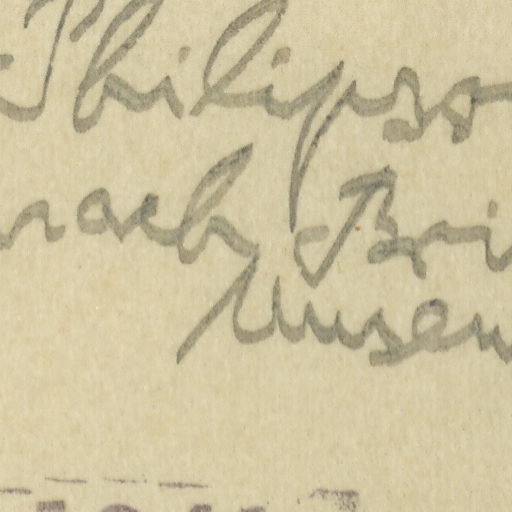 Philipso
nach Bri
Museu